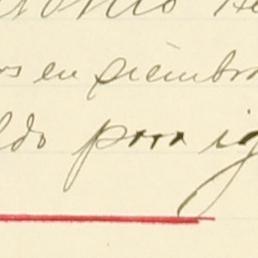 tonio He
os en siembra
ldo por ig